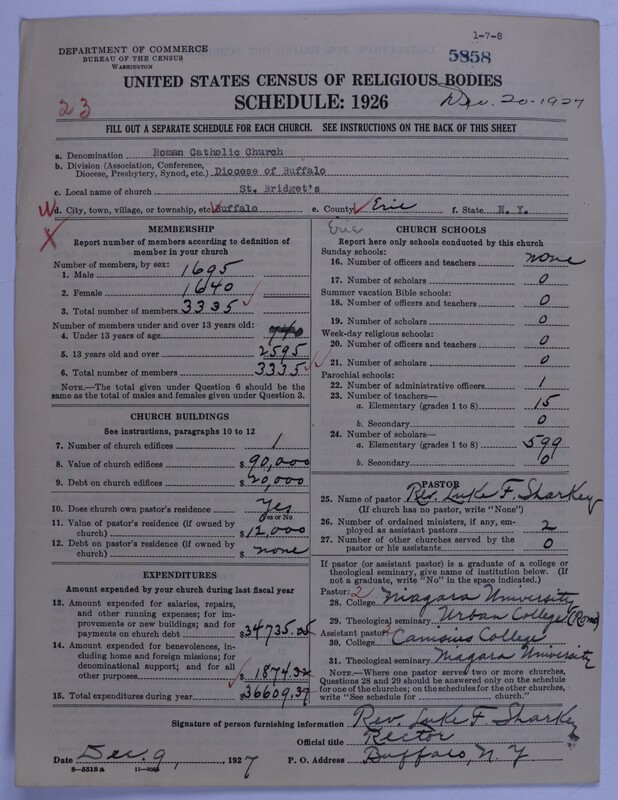 1-7-8
DEPARTMENT OF COMMERCE
BUREAU OF THE CENSUS
WASHINGTON
5858
UNITED STATES CENSUS OF RELIGIOUS BODIES
SCHEDULE: 1926
23
Dec. 20-1927
FILL OUT A SEPARATE SCHEDULE FOR EACH CHURCH. SEE INSTRUCTIONS ON THE BACK OF THIS SHEET
a. Denomination Roman Catholic Church
b. Division (Association, Conference, Diocese, Presbytery, Synod, etc.) Diocese of Buffalo
c. Local name of church St. Bridget's
d. City, town, village, or township, etc. Buffalo e. County Erie f. State N. Y.
MEMBERSHIP
Report number of members according to definition of member in your church
Number of members, by sex:
1. Male 1695
2. Female 1640
3. Total number of members 3335
Number of members under and over 13 years old:
4. Under 13 years of age 740
5. 13 years old and over 2595
6. Total number of members 3335
NOTE.—The total given under Question 6 should be the same as the total of males and females given under Question 3.
CHURCH BUILDINGS
See instructions, paragraphs 10 to 12
7. Number of church edifices 1
8. Value of church edifices $ 90,000
9. Debt on church edifices $ 20,000
10. Does church own pastor's residence Yes
Yes or No
11. Value of pastor's residence (if owned by church) $ 12,000
12. Debt on pastor's residence (if owned by church) $ none
EXPENDITURES
Amount expended by your church during last fiscal year
13. Amount expended for salaries, repairs, and other running expenses; for improvements or new buildings; and for payments on church debt $ 34735.05
14. Amount expended for benevolences, including home and foreign missions; for denominational support; and for all other purposes $ 1874.32
15. Total expenditures during year $ 36609.37
Erie
CHURCH SCHOOLS
Report here only schools conducted by this church
Sunday schools:
16. Number of officers and teachers none
17. Number of scholars 0
Summer vacation Bible schools:
18. Number of officers and teachers 0
19. Number of scholars 0
Week-day religious schools:
20. Number of officers and teachers 0
21. Number of scholars 0
Parochial schools:
22. Number of administrative officers 1
23. Number of teachers—
a. Elementary (grades 1 to 8) 15
b. Secondary 0
24. Number of scholars—
a. Elementary (grades 1 to 8) 599
b. Secondary 0
PASTOR
25. Name of pastor Rev. Luke F. Sharkey
(If church has no pastor, write "None")
26. Number of ordained ministers, if any, employed as assistant pastors 2
27. Number of other churches served by the pastor or his assistants 0
If pastor (or assistant pastor) is a graduate of a college or theological seminary, give name of institution below. (If not a graduate, write "No" in the space indicated.)
Pastor: 2
28. College Niagara University
29. Theological seminary Urban College (Rome)
Assistant pastor:
30. College Canisius College
31. Theological seminary Niagara University
NOTE.—Where one pastor serves two or more churches, Questions 28 and 29 should be answered only on the schedule for one of the churches; on the schedules for the other churches, write "See schedule for ______ church."
Signature of person furnishing information Rev. Luke F Sharkey
Official title Rector
Date Dec. 9, 1927 P. O. Address Buffalo, N. Y
8-5518a